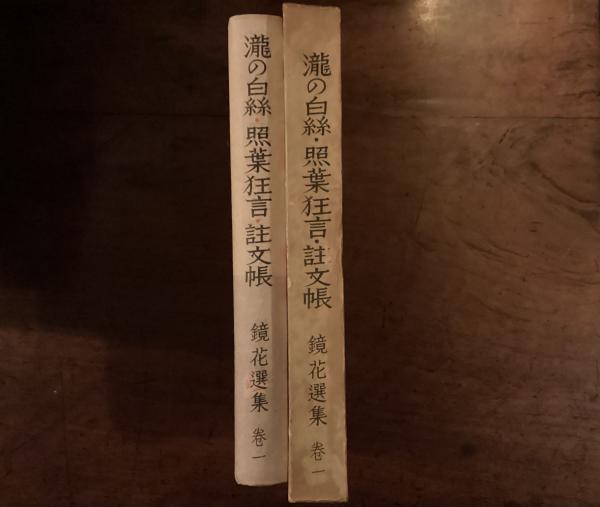 瀧の白絲・照葉狂言・註文帳
鏡花選集 卷一
瀧の白絲・照葉狂言・註文帳
鏡花選集 卷一